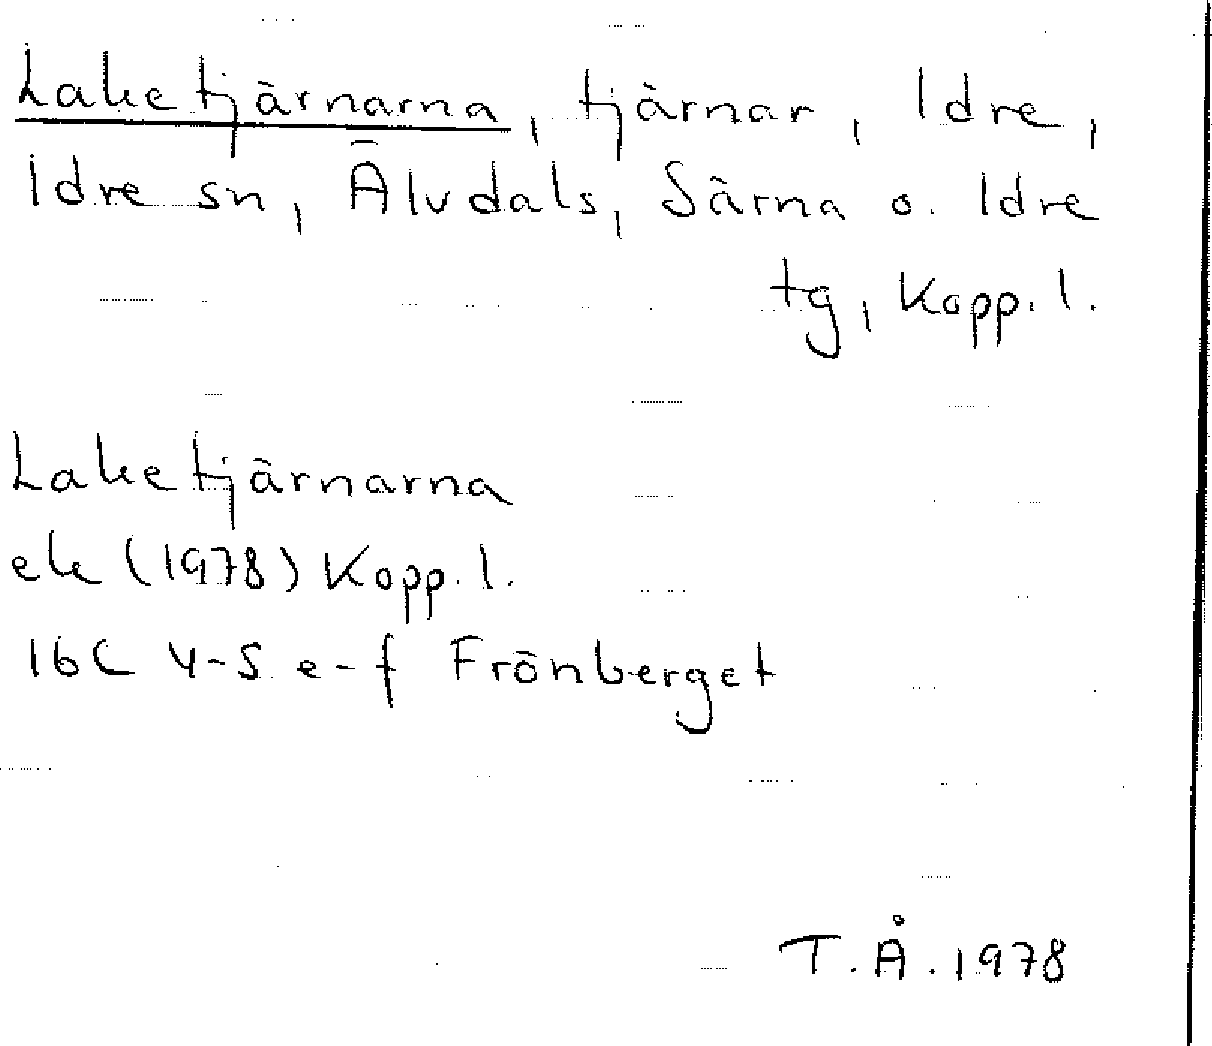 Laketjärnarna, tjärnar, Idre,
Idre sn, Älvdals, Särna o. Idre
tg, Kopp. l.
Laketjärnarna
ek (1978) Kopp. l.
16C 4-5 e-f Frönberget
T.Å. 1978